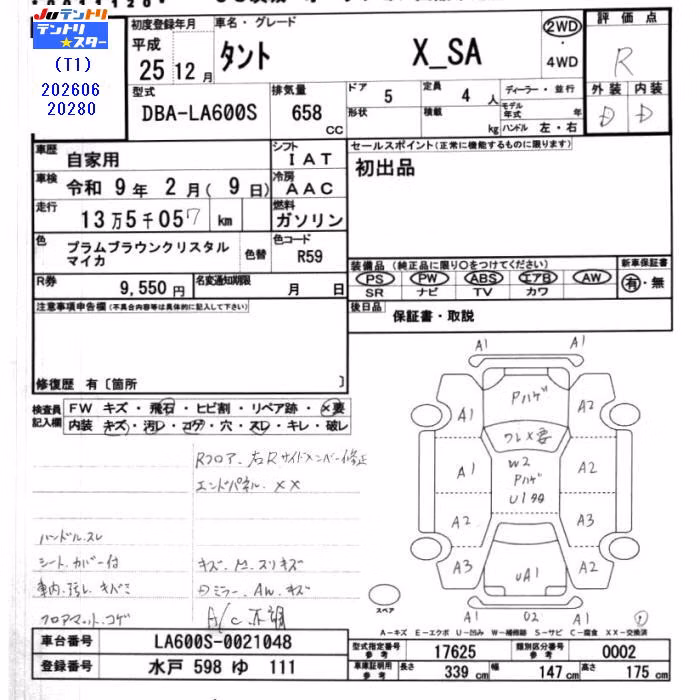 Juテントリ
テントリ★スター
(T1)
202606
20280
初度登録年月
平成
25 12 月
車名・グレード
タント X_SA
2WD
・
4WD
評価点
R
型式
DBA-LA600S
排気量
658
CC
ドア
5
形状
定員
4 人
積載
kg
ディーラー・並行
モデル年式 年
ハンドル 左・右
外装 内装
D D
車歴
自家用
シフト
IAT
セールスポイント(正常に機能するものに限ります)
初出品
車検
令和 9 年 2 月( 9 日)
冷房
AAC
走行
13万5千057 km
燃料
ガソリン
色
プラムブラウンクリスタルマイカ
色替
色コード
R59
R券
9,550 円
名変通知期限
月 日
装備品(純正品に限り○をつけてください)
PS PW ABS エアB AW
SR ナビ TV カワ
新車保証書
有・無
後日品
保証書・取説
注意事項申告欄(不具合内容等は具体的に記入して下さい)
修復歴 有〔箇所 〕
検査員記入欄
FW キズ・飛石・ヒビ割・リペア跡・×要
内装 キズ・汚レ・コゲ・穴・スレ・キレ・破レ
Rフロア、右Rサイドメンバー修正
エンドパネル、XX
ハンドル、スレ
シート、カバー付
車内、汚レ、キバミ
フロアマット、コゲ
キズ、凹、スリキズ
Dミラー、AW、キズ
A/C不調
A1 A1
Pハゲ
A1 A2
ワレ×要
W2
Pハゲ
U1
A1 A2
A2 A3
A3 A2
UA1
A1 02 A1
スペア
A-キズ E-エクボ U-凹み W-補修跡 S-サビ C-腐食 XX-交換済
車台番号
LA600S-0021048
登録番号
水戸 598 ゆ 111
型式指定番号
参考
17625
類別区分番号
参考
0002
車庫証明用
参考
長さ 339 cm
幅 147 cm
高さ 175 cm